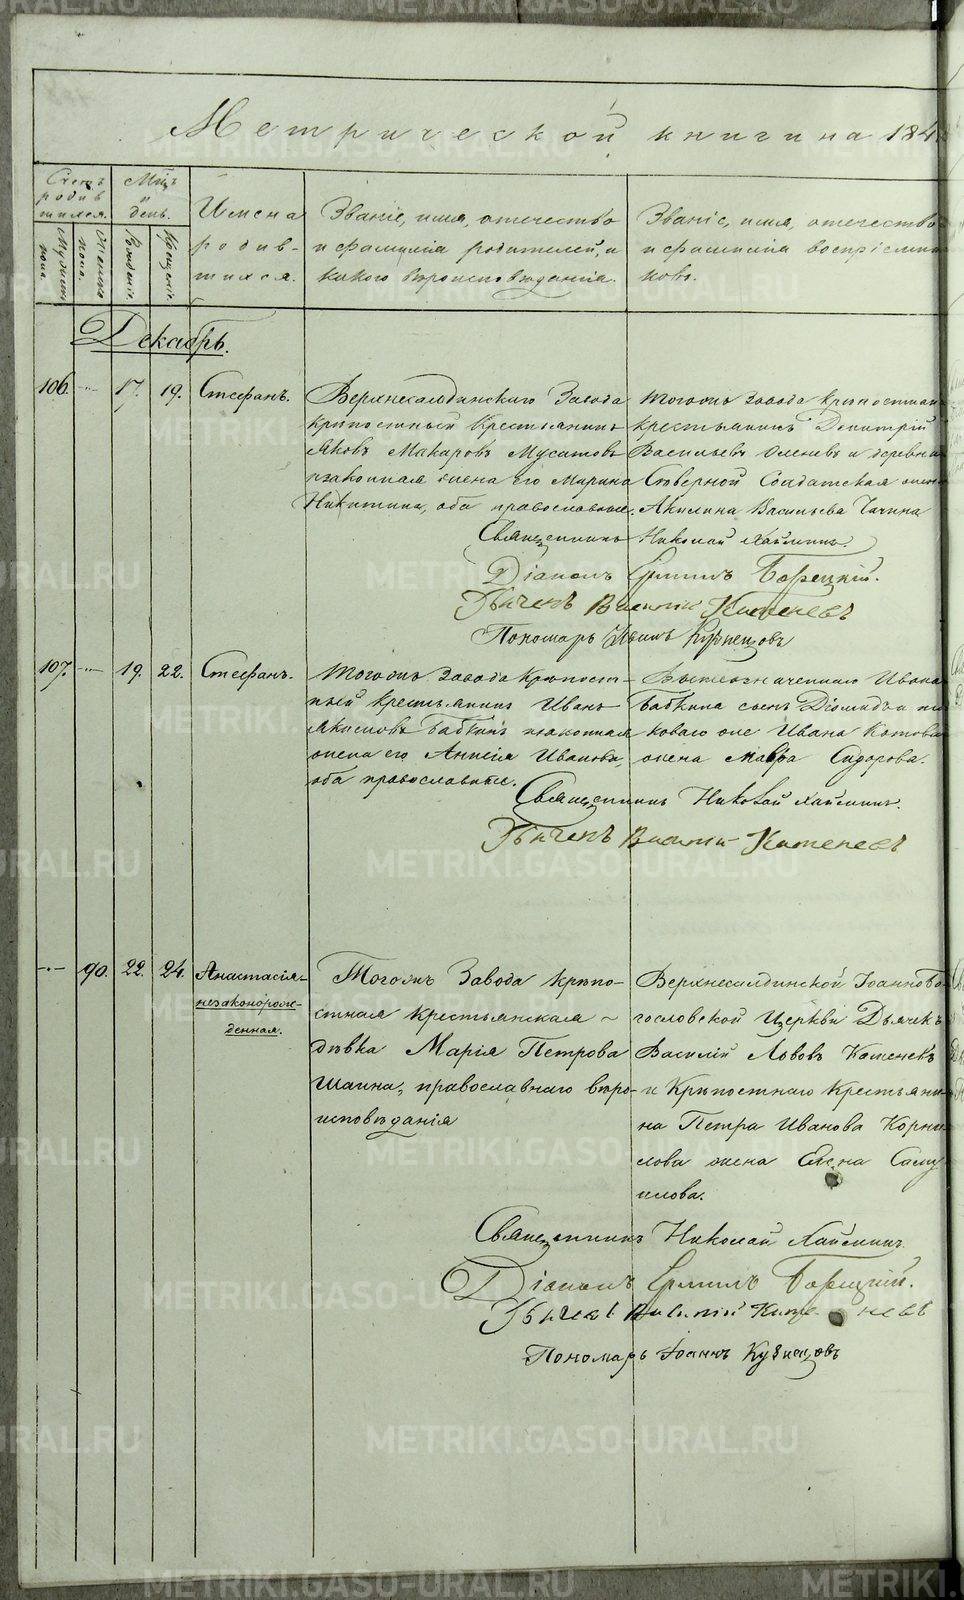 Метрической книги на 184
Счетъ родившихся.
Мужеска пола.
Женска пола.
Мцъ и день.
Рожденія.
Крещенія.
Имена родившихся.
Званіе, имя, отечество и фамилія родителей, и какого вѣроисповѣданія.
Званіе, имя, отечество и фамилія воспріемниковъ.
Декабрь.
106. 17. 19. Стефанъ.
Верхнесалдинскаго Завода
крѣпостный Крестьянинъ
Яковъ Макаровъ Мусатовъ
и законная жена его Марина
Никитина, оба православные.
Тогожъ Завода крѣпостный
крестьянинъ Димитрій
Васильевъ Оленевъ и деревни
Сѣверной Солдатская жена
Акилина Васильева
Священникъ Николай Хаймин
Діаконъ Ермилъ Борецкій.
Дьячекъ Василій Каменевъ
Пономарь Іоаннъ Кузнецовъ
107. 19. 22. Стефанъ.
Тогожъ Завода Крѣпост-
ный Крестьянинъ Иванъ
Бабкинъ и законная
жена его Анисія Иванова,
оба православные.
Вышеозначеннаго Ивана
Бабкина сынъ Діомидъ и та
коваго же Ивана Котова
жена Мавра Сидорова.
Священникъ Николай Хайминъ.
Дьячекъ Василій Каменевъ
90. 22. 24. Анастасія-
незаконорож-
денная.
Тогожъ Завода крѣпо-
стная крестьянская ~
дѣвка Марія Петрова
Шаина, православнаго вѣро-
исповѣданія
Верхнесалдинской Іоаннобо
гословской Церкви Дьячекъ
Василій Львовъ Каменевъ
и Крѣпостнаго Крестьяни
на Петра Иванова Корни
лова жена Елена Саму
илова.
Священникъ Николай Хайминъ.
Діаконъ Ермилъ Борецкій.
Дьячекъ Василій Каменевъ
Пономарь Іоаннъ Кузнецовъ
METRIKI.GASO-URAL.RU